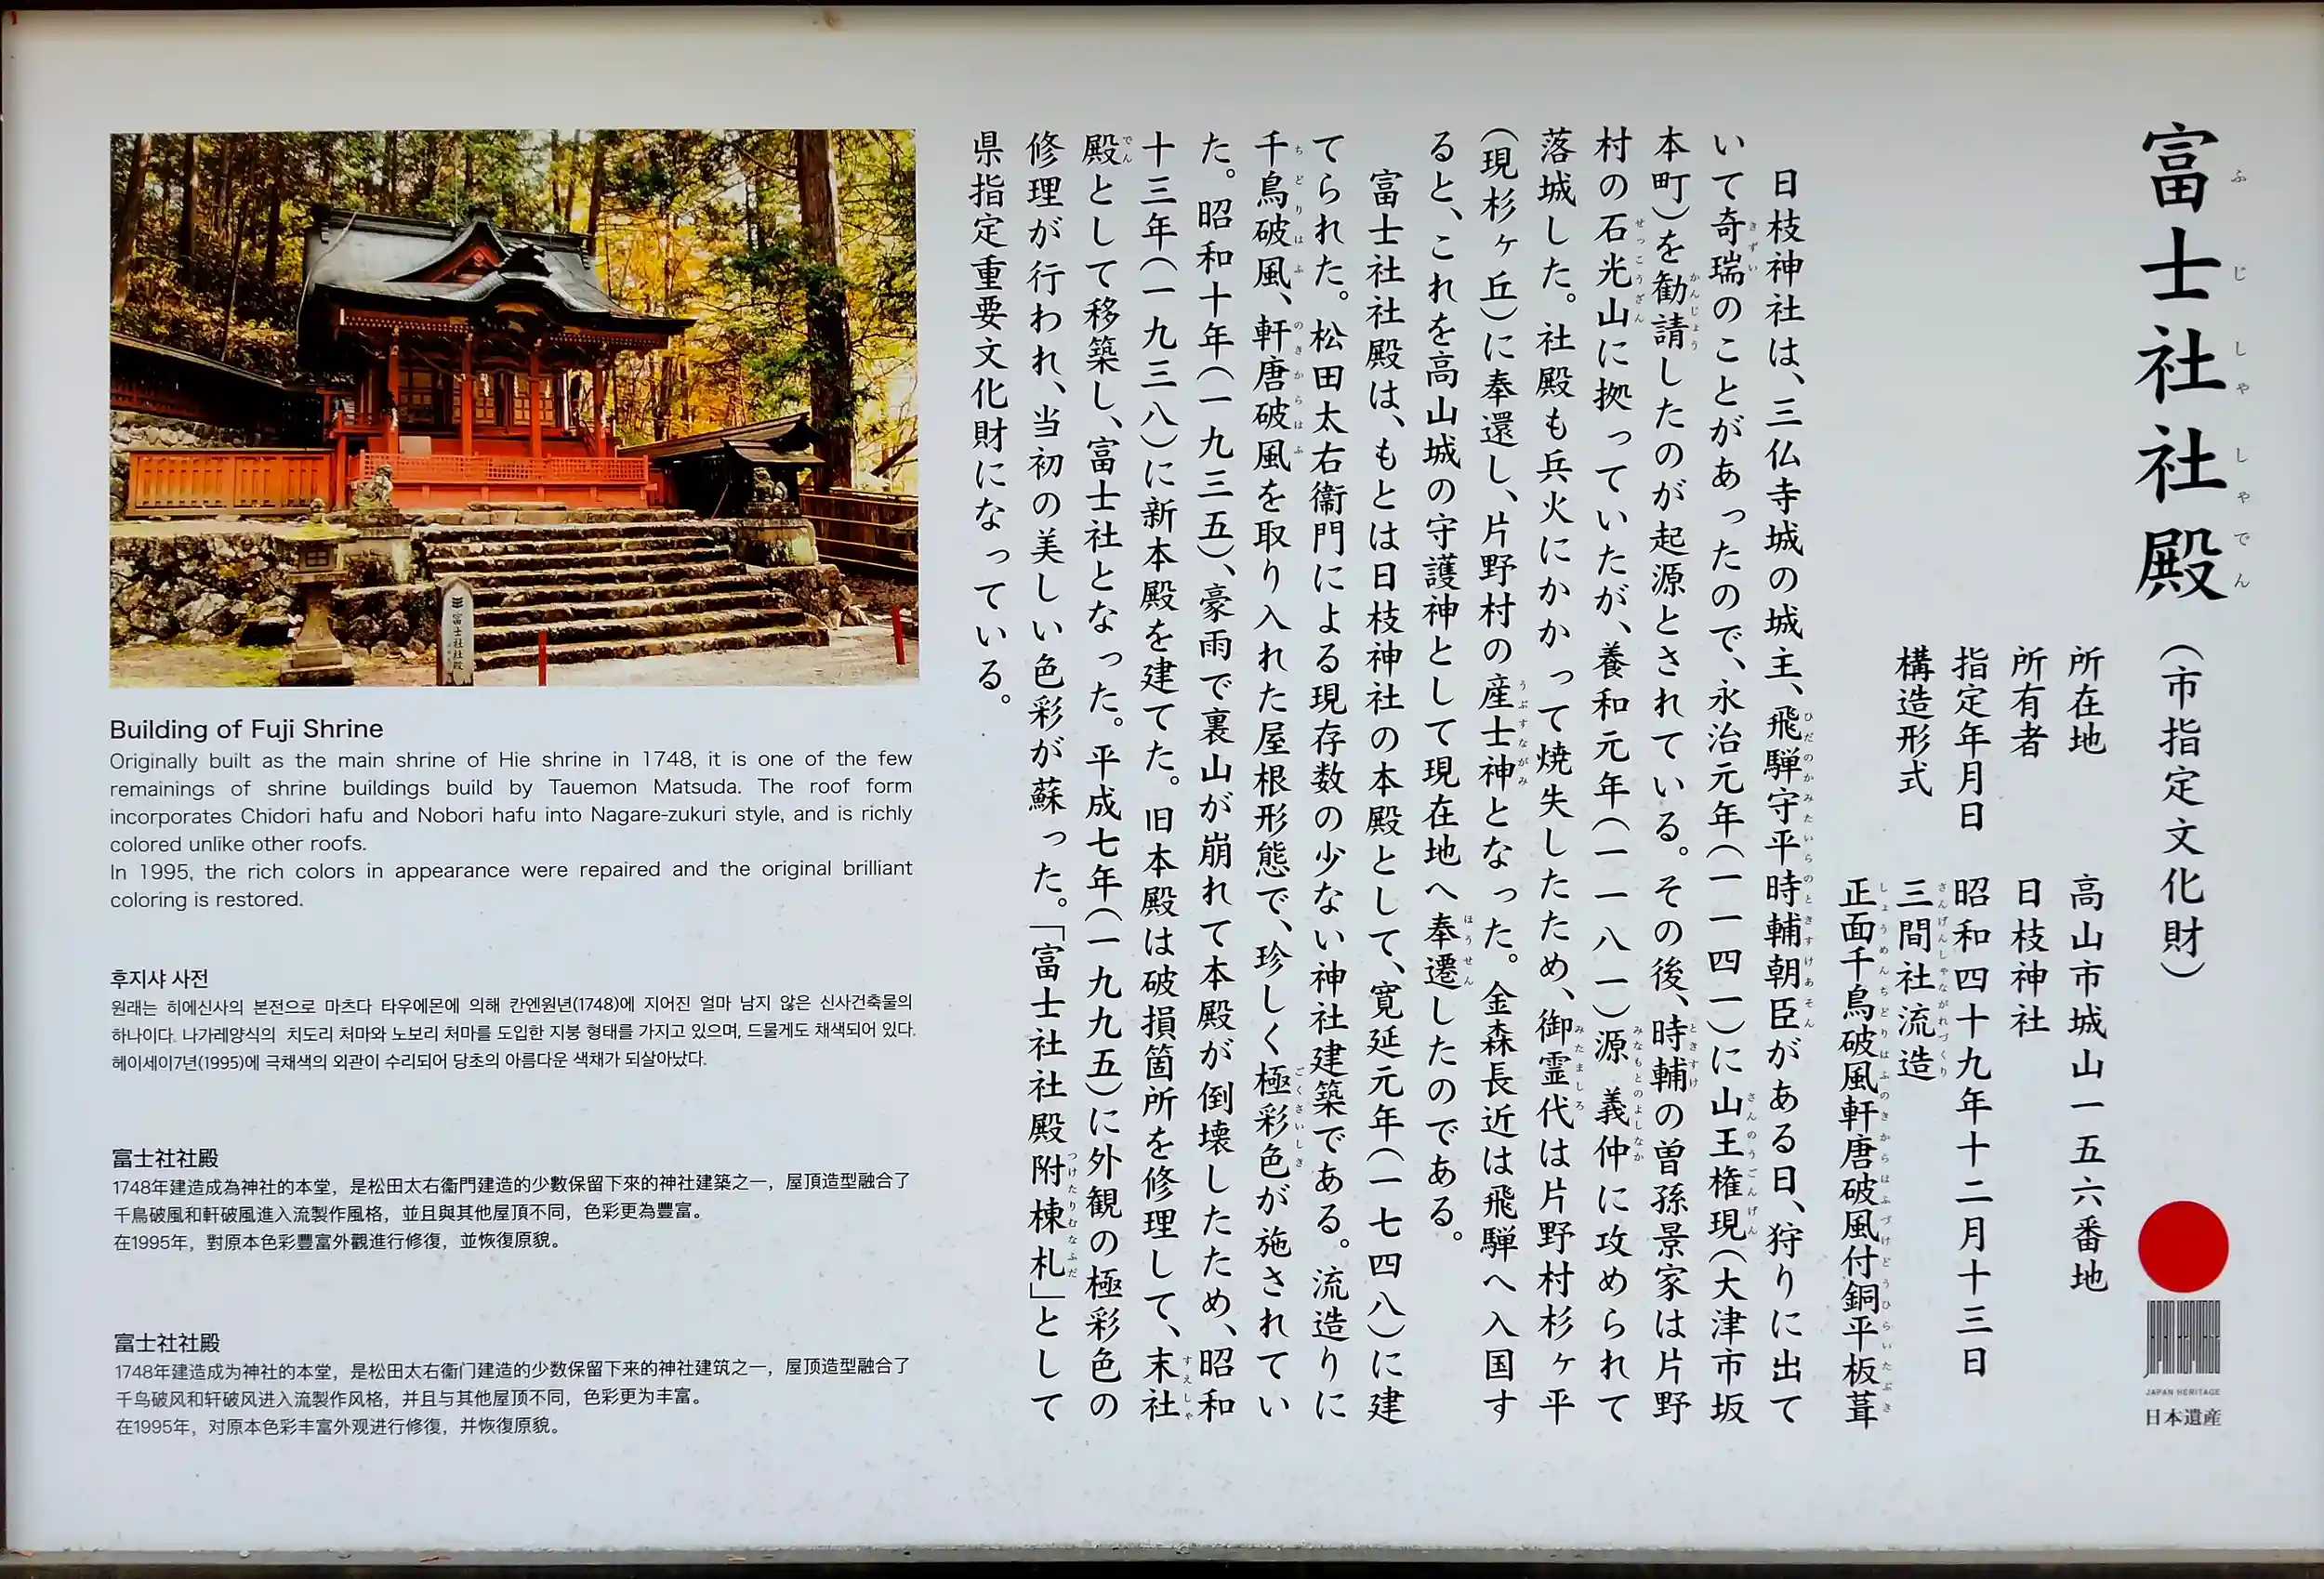 富士社社殿（市指定文化財）
所在地　高山市城山一五六番地
所有者　日枝神社
指定年月日　昭和四十九年十二月十三日
構造形式　三間社流造
正面千鳥破風軒唐破風付銅平板葺
日枝神社は、三仏寺城の城主、飛騨守平時輔朝臣がある日、狩りに出て
いて奇瑞のことがあったので、永治元年（一一四一）に山王権現（大津市坂
本町）を勧請したのが起源とされている。その後、時輔の曽孫景家は片野
村の石光山に拠っていたが、養和元年（一一八一）源義仲に攻められて
落城した。社殿も兵火にかかって焼失したため、御霊代は片野村杉ヶ平
（現杉ヶ丘）に奉還し、片野村の産土神となった。金森長近は飛騨へ入国す
ると、これを高山城の守護神として現在地へ奉遷したのである。
富士社社殿は、もとは日枝神社の本殿として、寛延元年（一七四八）に建
てられた。松田太右衞門による現存数の少ない神社建築である。流造りに
千鳥破風、軒唐破風を取り入れた屋根形態で、珍しく極彩色が施されてい
た。昭和十年（一九三五）、豪雨で裏山が崩れて本殿が倒壊したため、昭和
十三年（一九三八）に新本殿を建てた。旧本殿は破損箇所を修理して、末社
殿として移築し、富士社となった。平成七年（一九九五）に外観の極彩色の
修理が行われ、当初の美しい色彩が蘇った。「富士社社殿附棟札」として
県指定重要文化財になっている。
JAPAN HERITAGE
日本遺産
富士社社殿
Building of Fuji Shrine
Originally built as the main shrine of Hie shrine in 1748, it is one of the few
remainings of shrine buildings build by Tauemon Matsuda. The roof form
incorporates Chidori hafu and Nobori hafu into Nagare-zukuri style, and is richly
colored unlike other roofs.
In 1995, the rich colors in appearance were repaired and the original brilliant
coloring is restored.
후지샤 사전
원래는 히에신사의 본전으로 마츠다 타우에몬에 의해 칸엔원년(1748)에 지어진 얼마 남지 않은 신사건축물의
하나이다. 나가레양식의 치도리 처마와 노보리 처마를 도입한 지붕 형태를 가지고 있으며, 드물게도 채색되어 있다.
헤이세이7년(1995)에 극채색의 외관이 수리되어 당초의 아름다운 색채가 되살아났다.
富士社社殿
1748年建造成為神社的本堂，是松田太右衞門建造的少數保留下來的神社建築之一，屋頂造型融合了
千鳥破風和軒破風進入流製作風格，並且與其他屋頂不同，色彩更為豐富。
在1995年，對原本色彩豐富外觀進行修復，並恢復原貌。
富士社社殿
1748年建造成为神社的本堂，是松田太右衞门建造的少数保留下来的神社建筑之一，屋顶造型融合了
千鸟破风和轩破风进入流製作风格，并且与其他屋顶不同，色彩更为丰富。
在1995年，对原本色彩丰富外观进行修復，并恢復原貌。